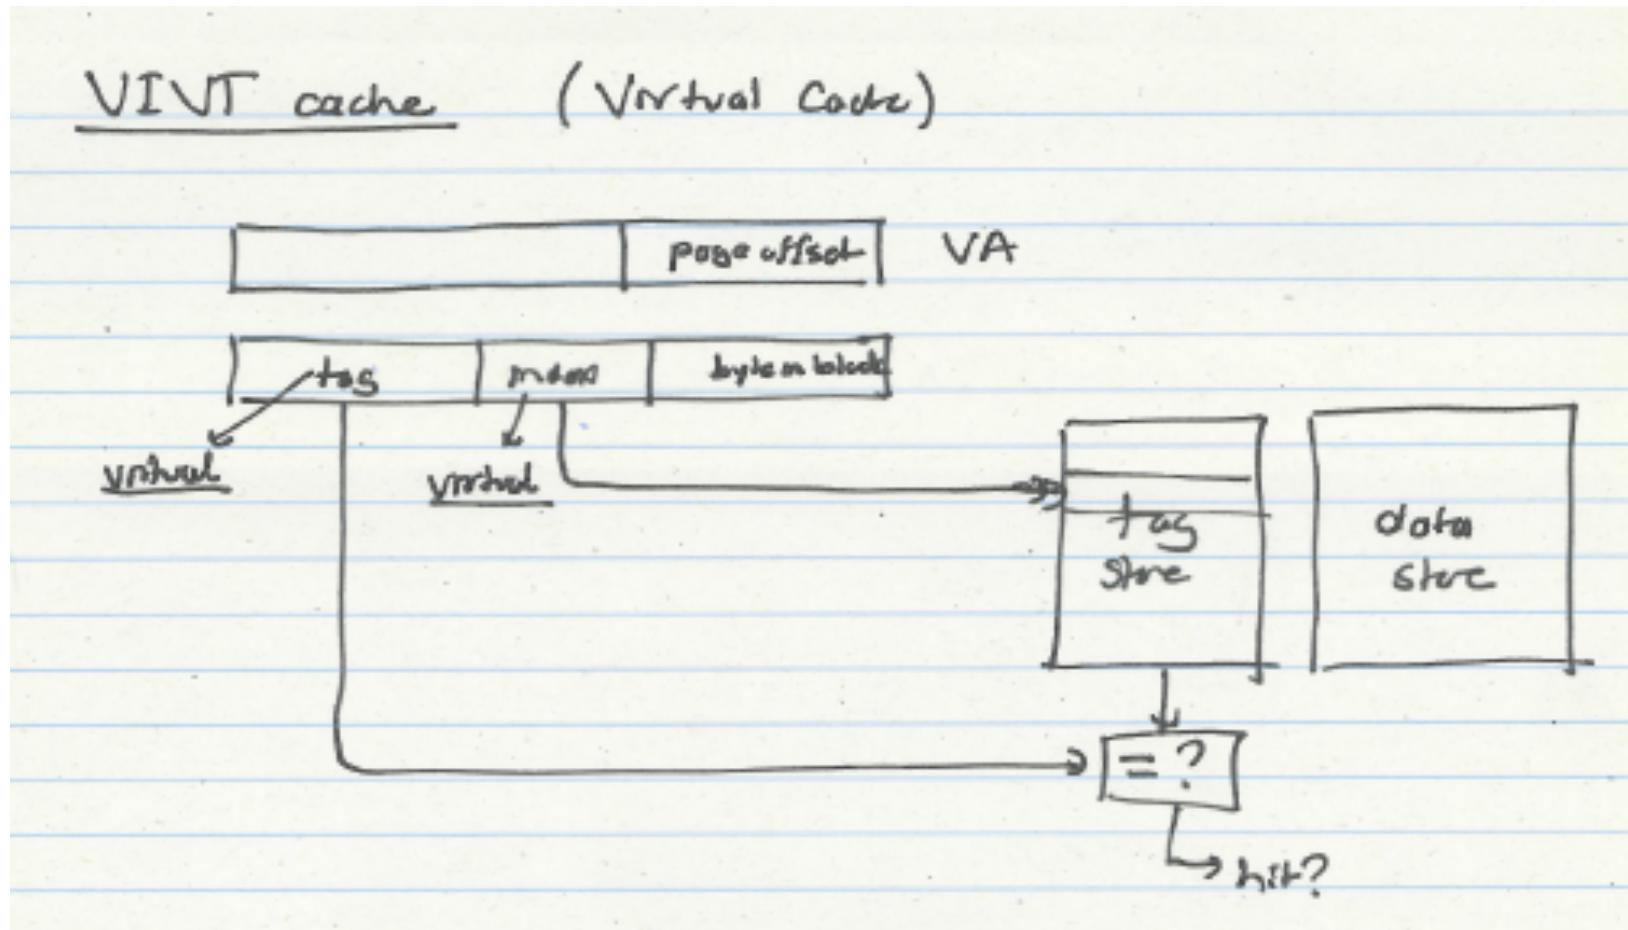 VIVT cache (Virtual Cache)
page offset VA
tag index byte in block
virtual virtual
tag
store
data
store
= ?
hit?